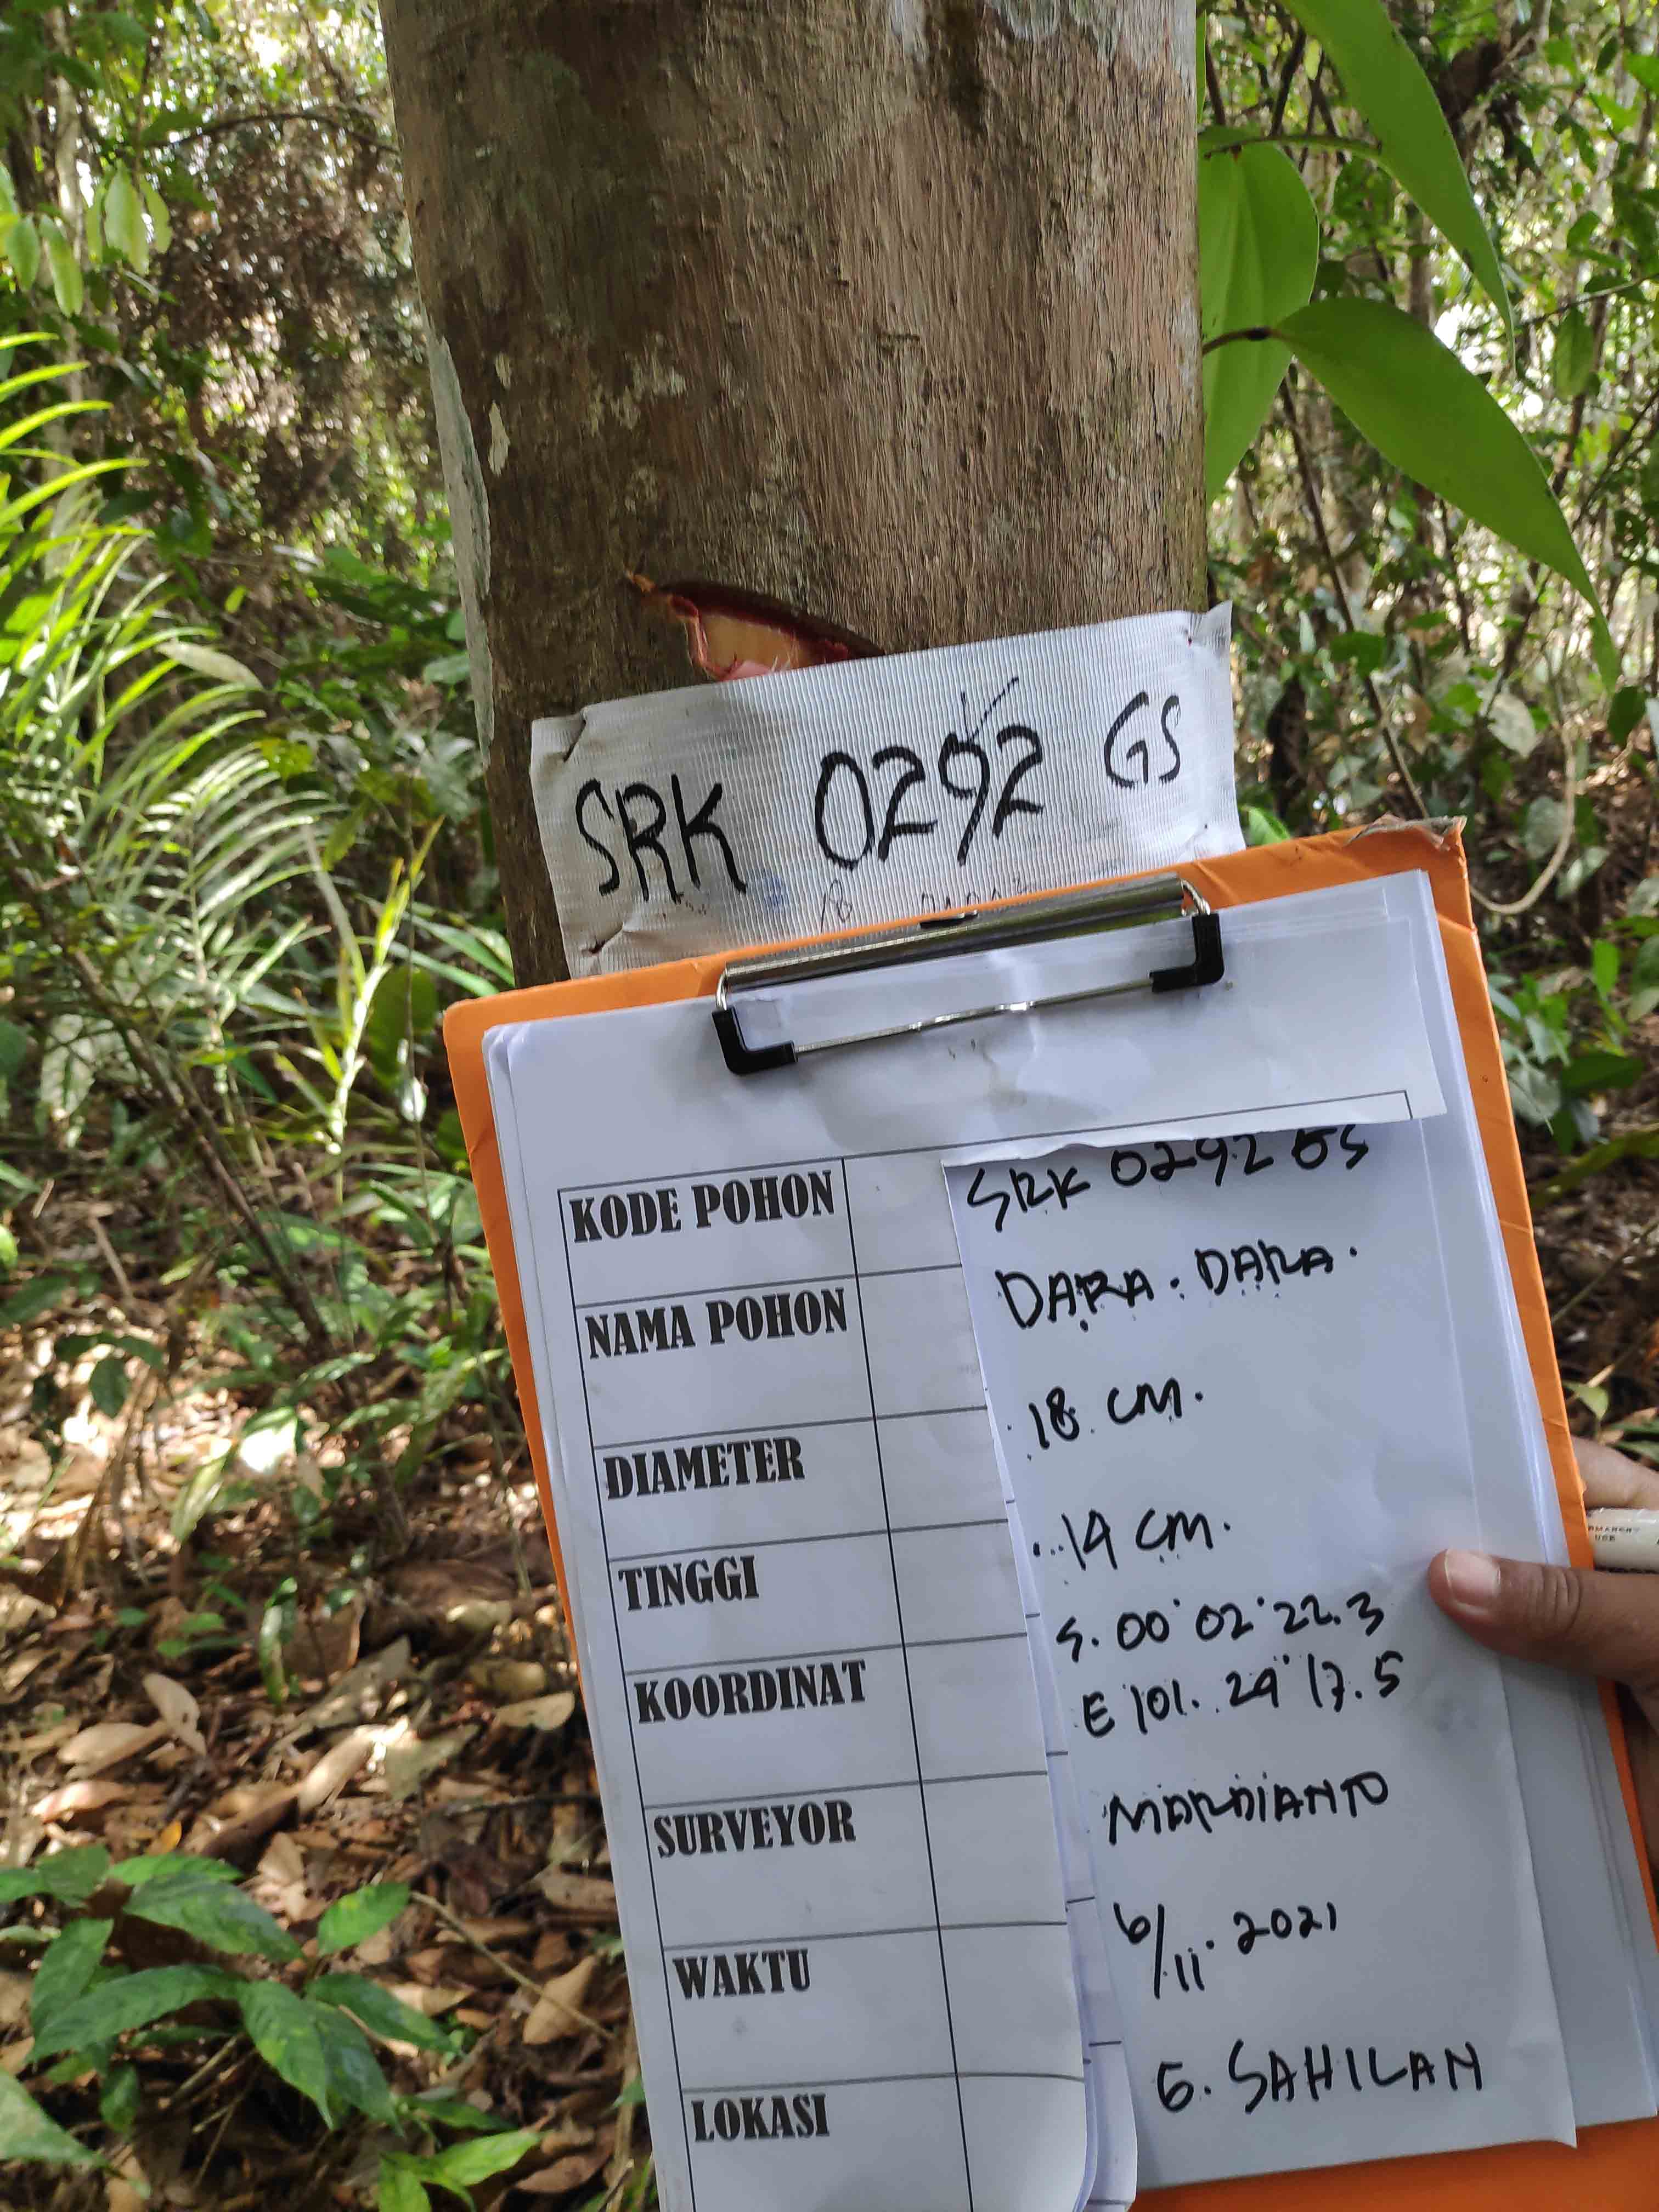 SRK 0292 GS
18
KODE POHON SRK 0292 GS
NAMA POHON DARA. DARA.
DIAMETER 18 CM.
TINGGI 14 CM.
KOORDINAT S. 00° 02' 22.3
E 101. 29' 17.5
SURVEYOR MARDIANTO
WAKTU 6/11. 2021
LOKASI G. SAHILAN
USE